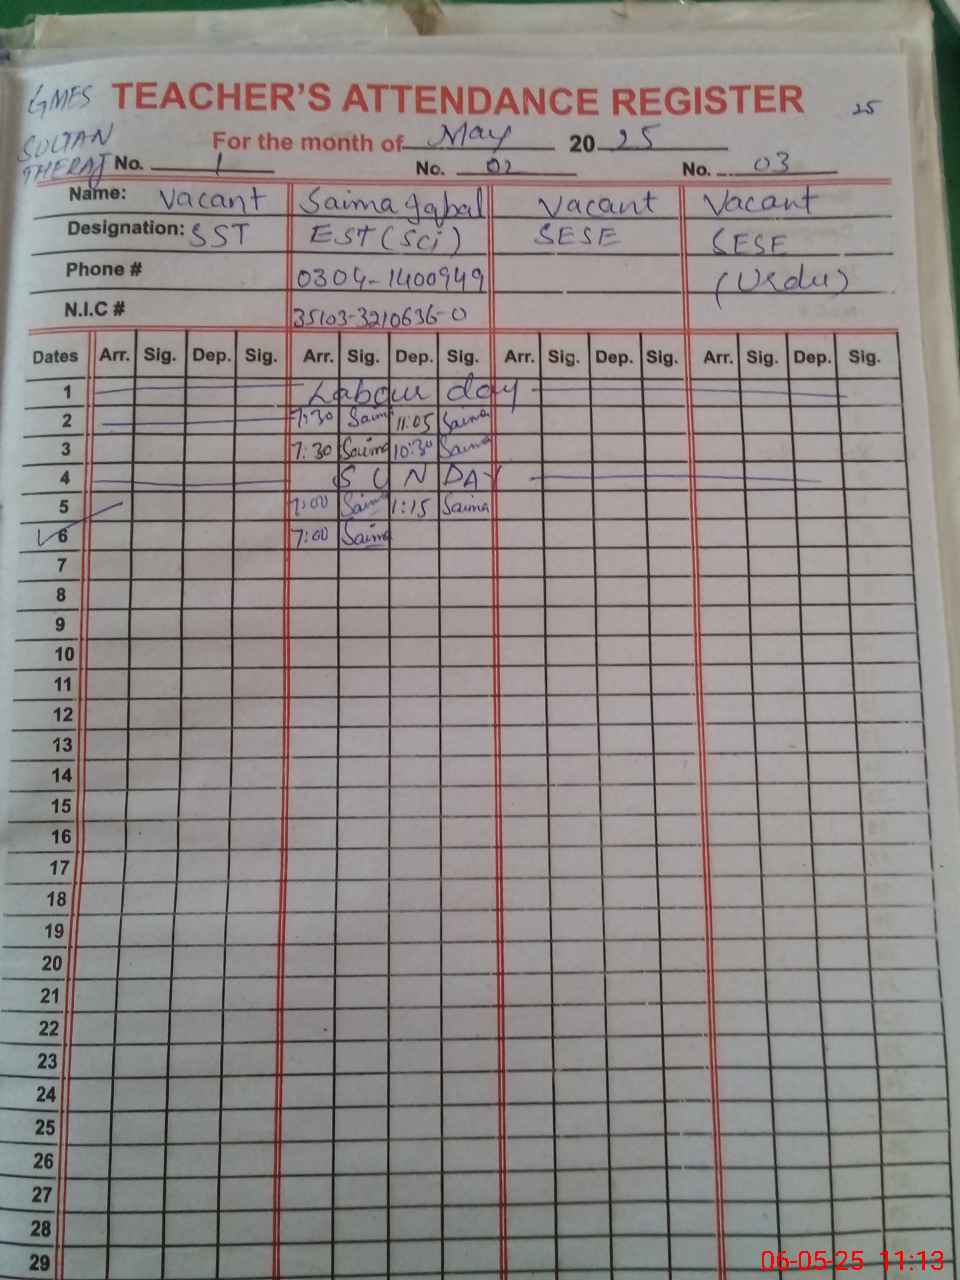 GMES TEACHER'S ATTENDANCE REGISTER 25
SULTAN For the month of May 20 25
THERAJ No. 1 No. 02 No. 03
Name: Vacant Saima Iqbal Vacant Vacant
Designation: SST EST (Sci) SESE SESE
Phone # 0304-1400949 (Urdu)
N.I.C # 35103-3210636-0
Dates Arr. Sig. Dep. Sig. Arr. Sig. Dep. Sig. Arr. Sig. Dep. Sig. Arr. Sig. Dep. Sig.
1 Labour day
2 7:30 Saima 11:05 Saima
3 7:30 Saima 10:30 Saima
4 S U N DAY
5 7:00 Saima 1:15 Saima
6 7:00 Saima
7
8
9
10
11
12
13
14
15
16
17
18
19
20
21
22
23
24
25
26
27
28
29
06-05-25 11:13